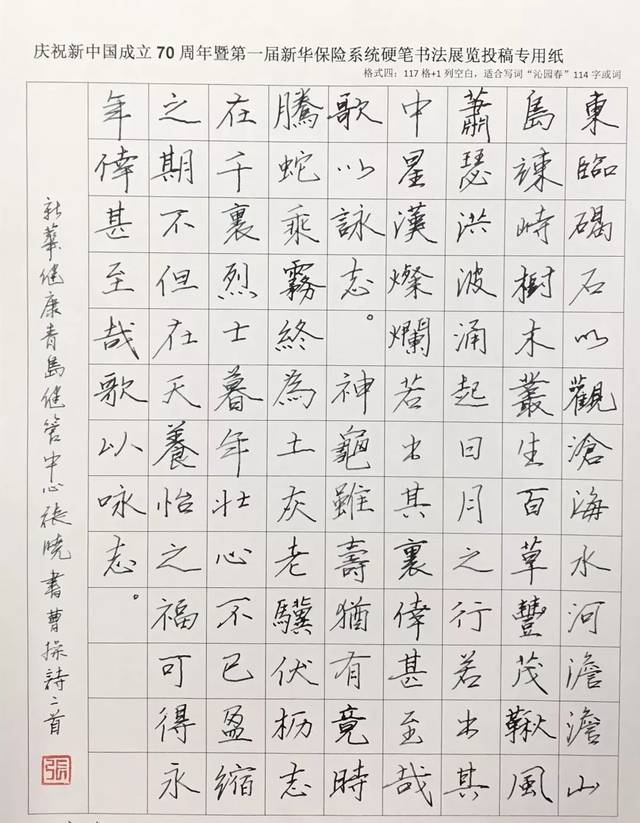 庆祝新中国成立70周年暨第一届新华保险系统硬笔书法展览投稿专用纸
格式四：117格+1列空白，适合写词“沁园春”114字或词
東臨碣石以觀滄海水河澹澹山
島竦峙樹木叢生百草豐茂鞦風
蕭瑟洪波涌起日月之行若出其
中星漢燦爛若出其裏倖甚至哉
歌以詠志。神龜雖壽猶有竟時
騰蛇乘霧終為土灰老驥伏枥志
在千裏烈士暮年壯心不已盈縮
之期不但在天養怡之福可得永
年倖甚至哉歌以咏志。
新華健康青島健管中心張曉書曹操詩二首
張